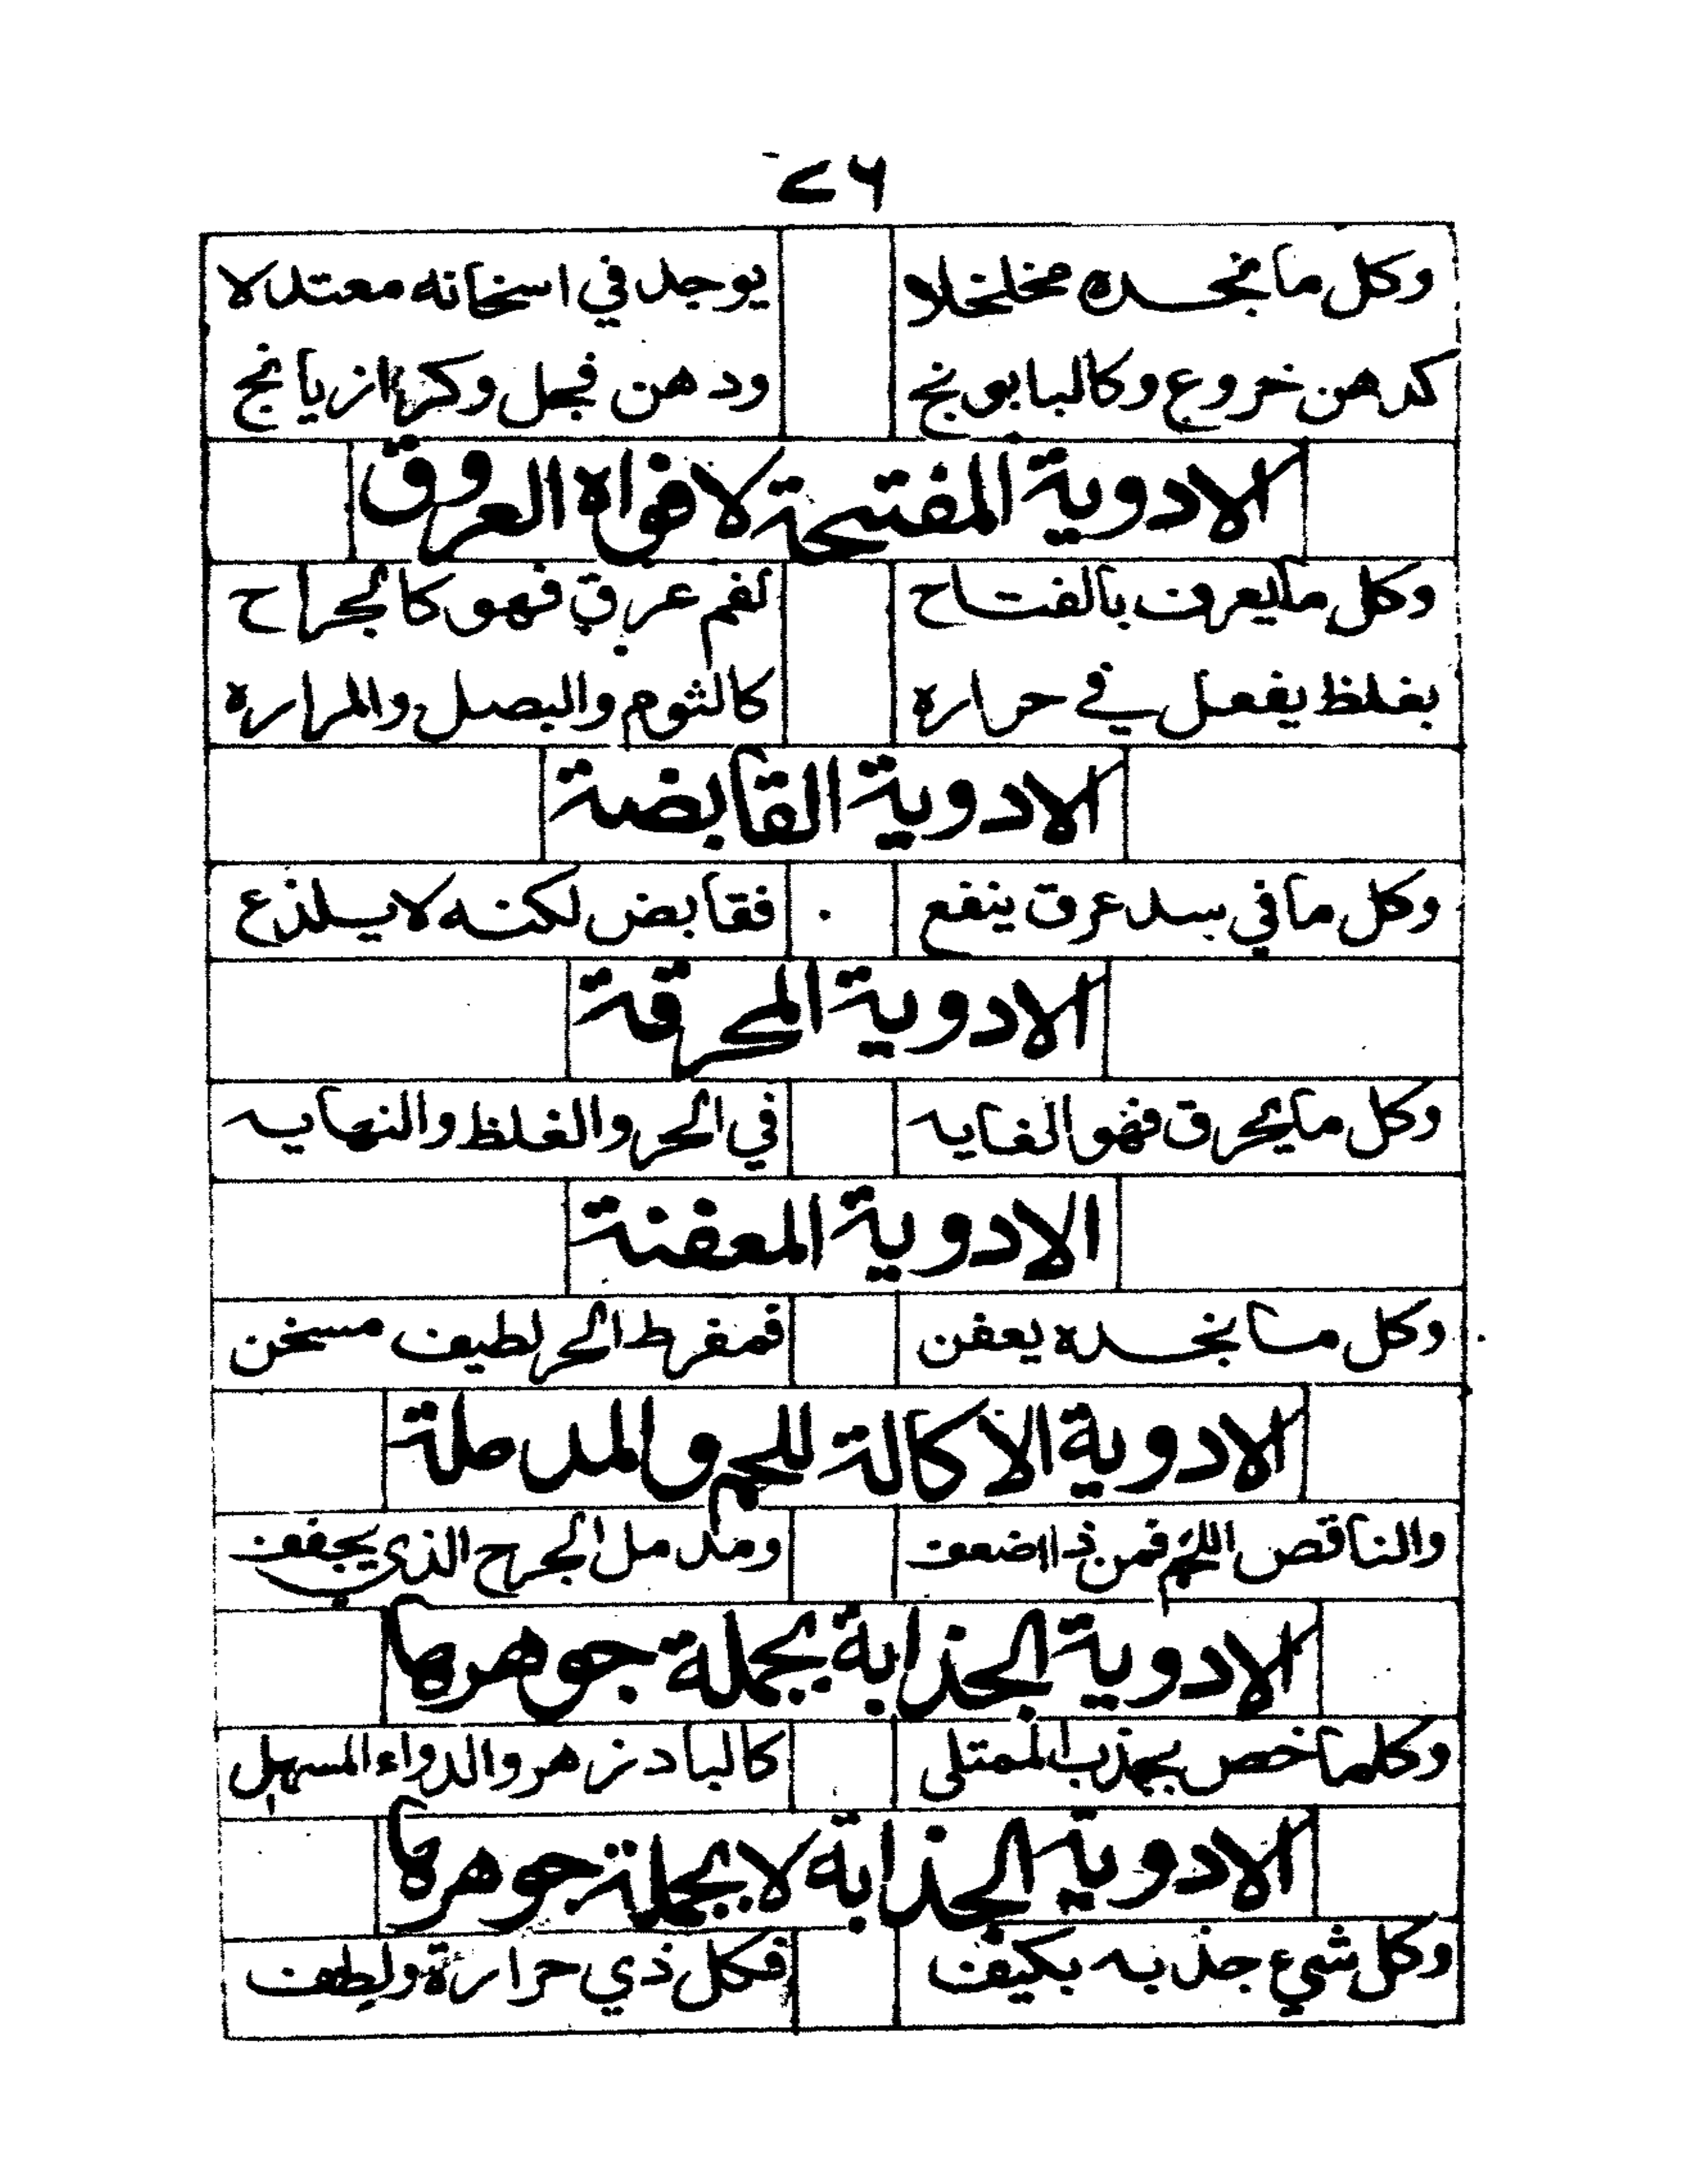 ٤٦
وكل ما نجده مخلخلا يوجد في اسخانه معتدلا
كدهن خروع وكالبابونج ودهن فجل وكرازيانج
الادوية المفتحة لافواه العروق
وكل ما يعرف بالفتاح لفم عرق فهو كالجراح
بغلظ يفعل في حراره كالثوم والبصل والمراره
الادوية القابضة
وكل ما في سد عرق ينفع فقابض لكنه لا يلذع
الادوية المحرقة
وكل ما يحرق فهو الغايه في الحر والغلظ والنهايه
الادوية المعفنة
وكل ما نجده يعفن فمفرط الحر لطيف مسخن
الادوية الأكالة للحم والمدملة
والناقص اللحم فمن ذا اضعف ومدمل الجرح الذي يجفف
الادوية الجذابة بجملة جوهرها
وكلما خص بجذب الممتلي كالبادزهر والدواء المسهل
الادوية الجذابة لا بجملة جوهرها
وكل شيء جذبه بكيف فكل ذي حرارة ولطف